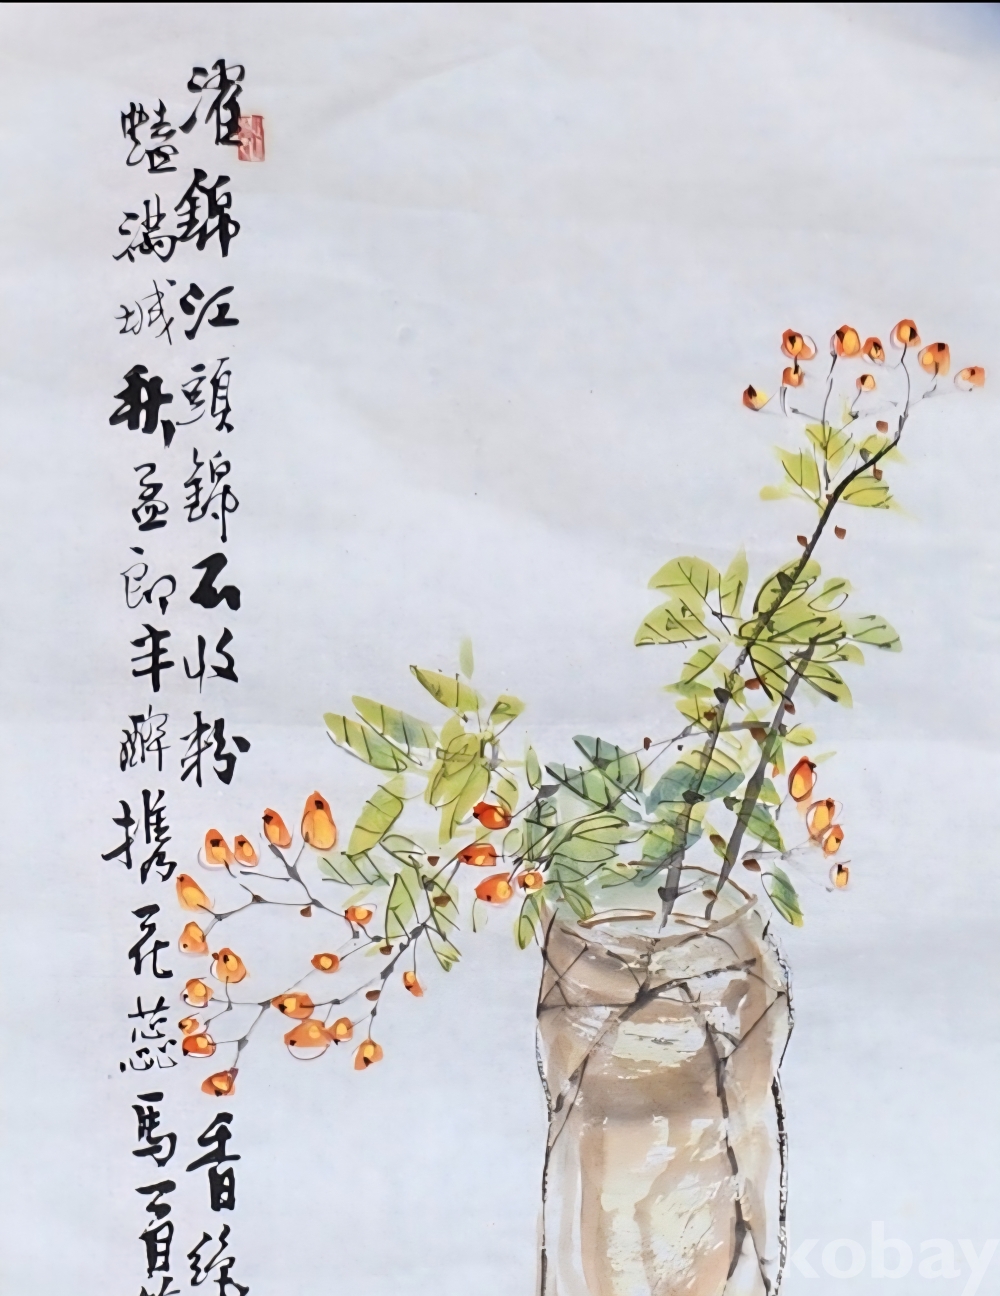 濯錦江頭錦石收粉香
豔滿城秋孟郎半醉攜花蕊馬首
kobay